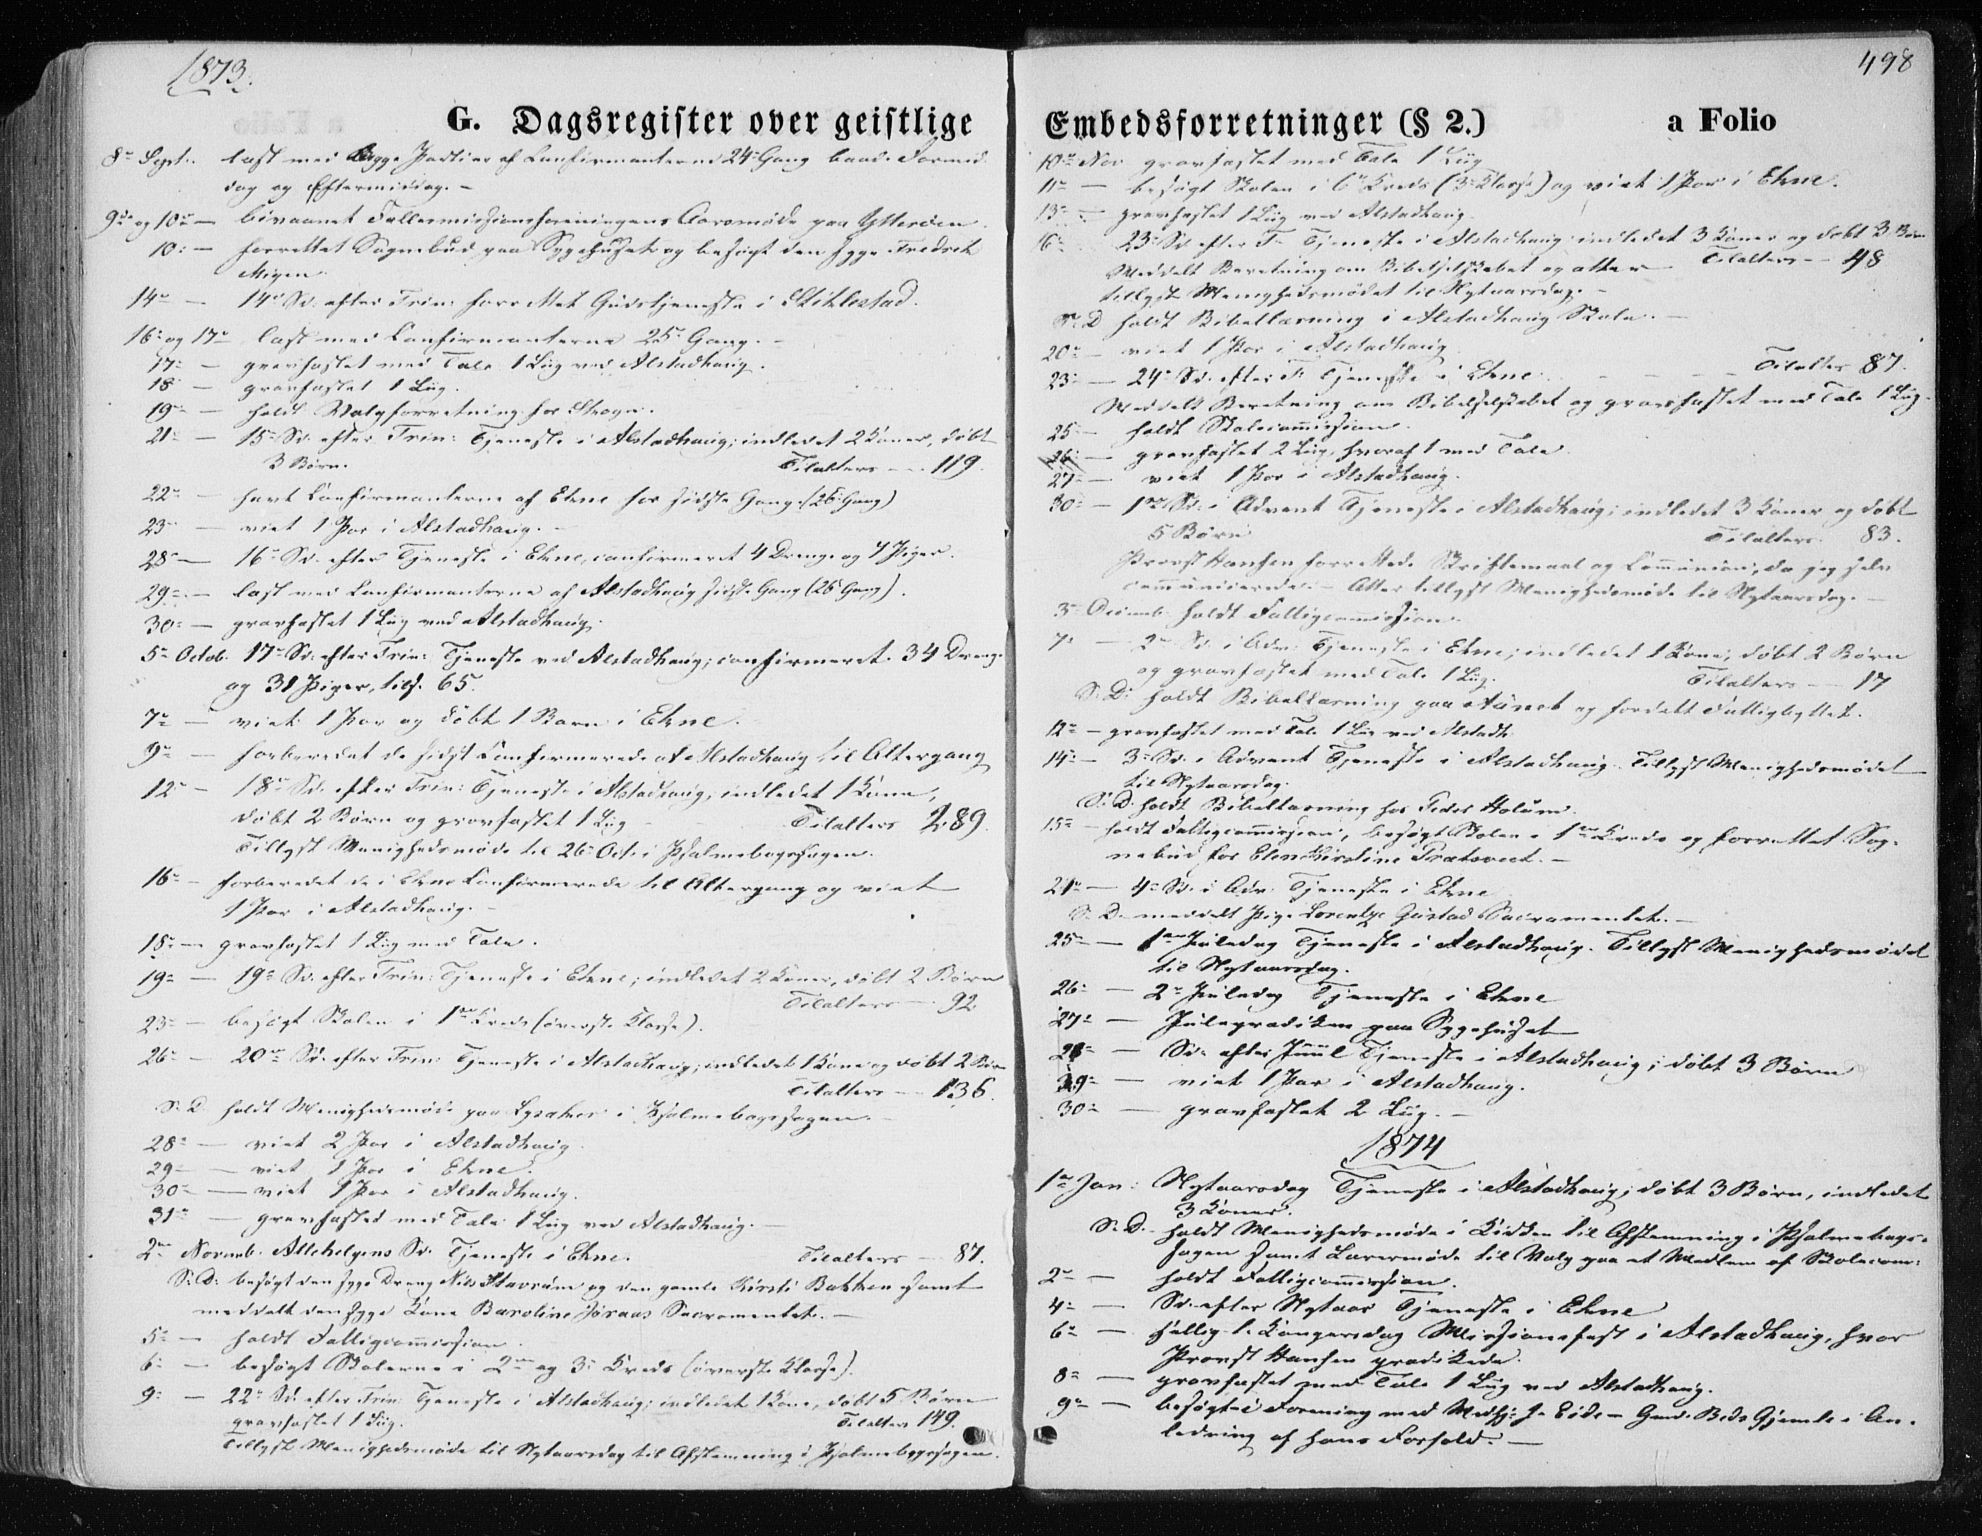 1873.
G. Dagsregister over geistlige
8de Sept. læst med begge Partier af Confirmanterne 24de Gang baade Formid-
dag og Eftermiddag. –
9de og 10de – bivaanet Fællesmissionsforeningens Aarsmøde paa Ytterøen.
10de – forrettet Sognebud paa Sygehuset og besøgt den syge Fredrik
14de – 14de Sd. efter Trin: forrettet Gudstjeneste i Stiklestad.
16de og 17de læst med Confirmanterne 25de Gang. –
17de – gravfæstet med Tale 1 Liig ved Alstadhaug.
18 – gravfæstet 1 Liig.
19de – holdt Valgforretning for Skogn.
21de – 15de Sd. efter Trin: Tjeneste i Alstadhaug; indledet 2 Koner, døbt
3 Børn. Tilalters – 119.
22de – havt Confirmanterne af Ekne for sidste Gang. (26de Gang)
23de – viet 1 Par i Alstadhaug. –
28de – 16de Sd. efter Tjeneste i Ekne, confirmeret 4 Drenge og 4 Piger.
29de – læst med Confirmanterne af Alstadhaug sidste Gang (26de Gang).
30de – gravfæstet 1 Liig ved Alstadhaug.
5te Octob. 17de Sd. efter Trin: Tjeneste ved Alstadhaug; confirmeret 34 Drenge
og 31 Piger, tils. 65.
7de – viet 1 Par og døbt 1 Barn i Ekne.
9de – forberedet de sidst Confirmerede af Alstadhaug til Altergang
12te – 18de Sd. efter Trin: Tjeneste i Alstadhaug, indledet 1 Kone,
døbt 2 Børn og gravfæstet 1 Liig – Tilalters 289.
Tillyst Menighedsmøde til 26de Oct. i Psalmebogssagen.
16de – forberedet de i Ekne Confirmerede til Altergang og viet
1 Par i Alstadhaug. –
18de – gravfæstet 1 Liig med Tale.
19de – 19de Sd. efter Trin: Tjeneste i Ekne; indledet 2 Koner, døbt 2 Børn
Tilalters – 92.
23de – besøgt Skolen i 1ste Kreds (øverste Klasse).
26de – 20de Sd. efter Trin: Tjeneste i Alstadhaug; indledet 1 Kone og døbt 2 Børn
Tilalters – 136.
S: D. holdt Menighedsmøde paa Lysaker i Psalmebogssagen. –
28de – viet 2 Par i Alstadhaug
29de – viet 1 Par i Ekne.
30de – viet 1 Par i Alstadhaug.
31te – gravfæstet med Tale 1 Liig ved Alstadhaug. –
2den Novmb. Allehelgens Sd. Tjeneste i Ekne. Tilalters 87.
S: D: besøgt den syge Dreng Nils Stavrum og den gamle Kirsti Bakken samt
meddelt den syge Kone Baroline Joraas Sacramentet. –
5te – holdt Fattigcommission.
6te – besøgt Skolerne i 2den og 3de Kreds (øverste Klasse).
9de – 22de Sd. efter Trin: Tjeneste i Alstadhaug; indledet 1 Kone, døbt 5 Børn
gravfæstet 1 Liig. Tilalters 149.
Tillyst Menighedsmøde til Nytaarsdag til Afstemning i Psalmebogssagen.
498
Embedsforretninger (§ 2.) a Folio
10de Nov gravfæstet med Tale 1 Liig
11te – besøgt Skolen i 6te Kreds (3de Klasse) og viet 1 Par i Ekne.
13de – gravfæstet 1 Liig ved Alstadhaug.
16de 23de Sd. efter Tr. Tjeneste i Alstadhaug; indledet 3 Koner og døbt 3 Børn
Meddelt Beretning om Bibelselskabet og atter Tilalters – 48
tillyst Menighedsmødet til Nytaarsdag. –
S: D holdt Bibellæsning i Alstadhaug Skole. –
20de – viet 1 Par i Alstadhaug
23de – 24de Sd. efter Tr Tjeneste i Ekne. Tilalters 87.
Meddelt Beretning om Bibelselskabet og gravfæstet med Tale 1 Liig.
25de – holdt Skolecommission.
26de – gravfæstet 2 Liig, hvoraf 1 med Tale.
27de – viet 1 Par i Alstadhaug.
30de – 1ste Sd. i Advent Tjeneste i Alstadhaug; indledet 3 Koner og døbt
5 Børn Tilalters 83.
Provst Hansen forrettede Skriftemaal og Communion, da jeg selv
communicerede. – Atter tillyst Menighedsmøde til Nytaarsdag. –
3de Decemb. holdt Fattigcommission.
7de – 2den Sd. i Adv: Tjeneste i Ekne; indledet 1 Kone, døbt 2 Børn
og gravfæstet med Tale 1 Liig. Tilalters – 17
S: D: holdt Bibellæsning paa Aunet og fordelt Fattigbyttet.
12te – gravfæstet med Tale 1 Liig ved Alstadh:
14de – 3de Sd. i Advent Tjeneste i Alstadhaug. Tillyst Menighedsmødet
til Nytaarsdag.
S: D: holdt Bibellæsning hos Peder Holum.
15de – holdt Fattigcommission, besøgt Skolen i 1ste Kreds og forrettet Sog-
nebud for Elen Kirstine –
21de – 4de Sd. i Adv. Tjeneste i Ekne
S: D. meddelt Pige Lorentse Gustad Sacramentet. –
25de – 1ste Juledag Tjeneste i Alstadhaug. Tillyst Menighedsmødet
til Nytaarsdag.
26de – 2den Juledag Tjeneste i Ekne
27de – Juleprædiken paa Sygehuset
28de – Sd. efter Juul Tjeneste i Alstadhaug; døbt 3 Børn
29de – viet 1 Par i Alstadhaug.
30de – gravfæstet 2 Liig. –
1874
1ste Jan: Nytaarsdag Tjeneste i Alstadhaug; døbt 3 Børn, indledet
3 Koner.
S: D. holdt Menighedsmøde i Kirken til Afstemning i Psalmebogs-
sagen samt Lærermøde til Valg paa et Medlem af Skolecom:
2den – holdt Fattigcommission.
4de – Sd. efter Nytaar Tjeneste i Ekne
6te – Hellig 3 Kongersdag Missionsfest i Alstadhaug, hvor
Provst Hansen prædikede.
8de – gravfæstet med Tale 1 Liig ved Alstadhaug.
9de – besøgte i Forening med Gjemle i An-
ledning af hans Forhold. –